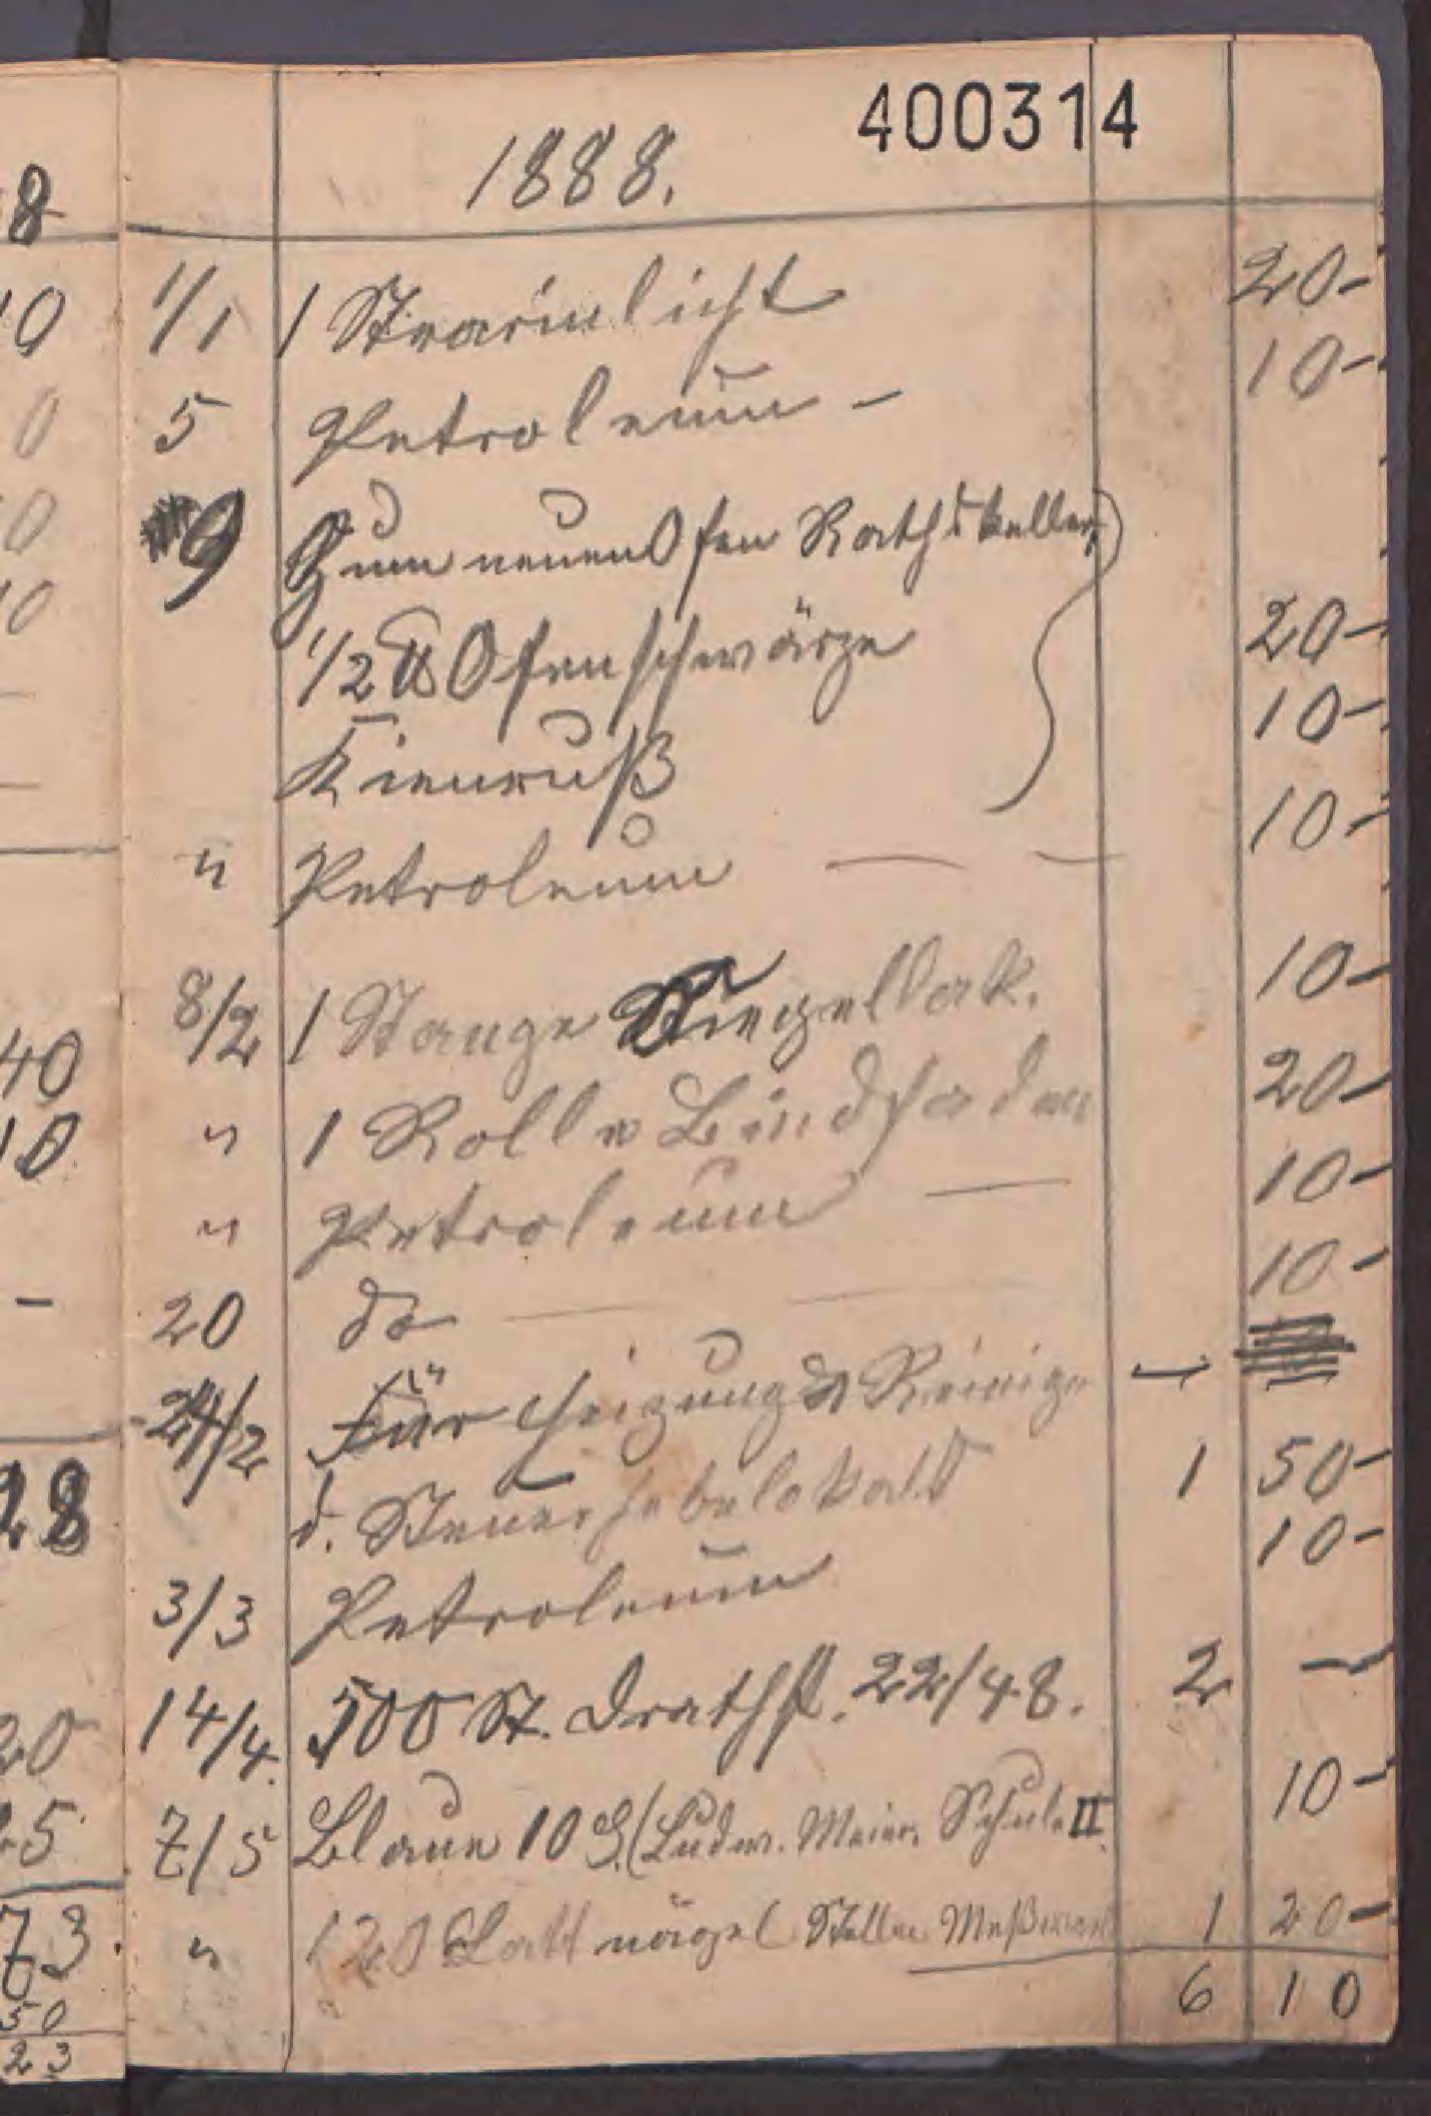 400314
1888.
1/1 1 Stearinlicht 20-
5 Petroleum - 10-
9 Zum neuen Ofen Rathskeller
1/2 ℔ Ofenschwärze 20-
Kienruß 10-
" Petroleum — — 10-
8/2 1 Stange Siegellak. 10-
" 1 Rolle Bindfaden 20-
" Petroleum — 10-
20 do — — 10-
24/2 Für Heizung & Reinige —
d. Steuerhebelokals 1 50-
3/3 Petroleum 10-
14/4. 500 St. Drathst. 22/48. 2 —
7/5 Blaue 10 (Ludw. Meier. Schule II 10-
" 120 Lattnägel 1 20-
6 10
8
10
0
0
10
40
10
-
28
20
25
73.
50
23